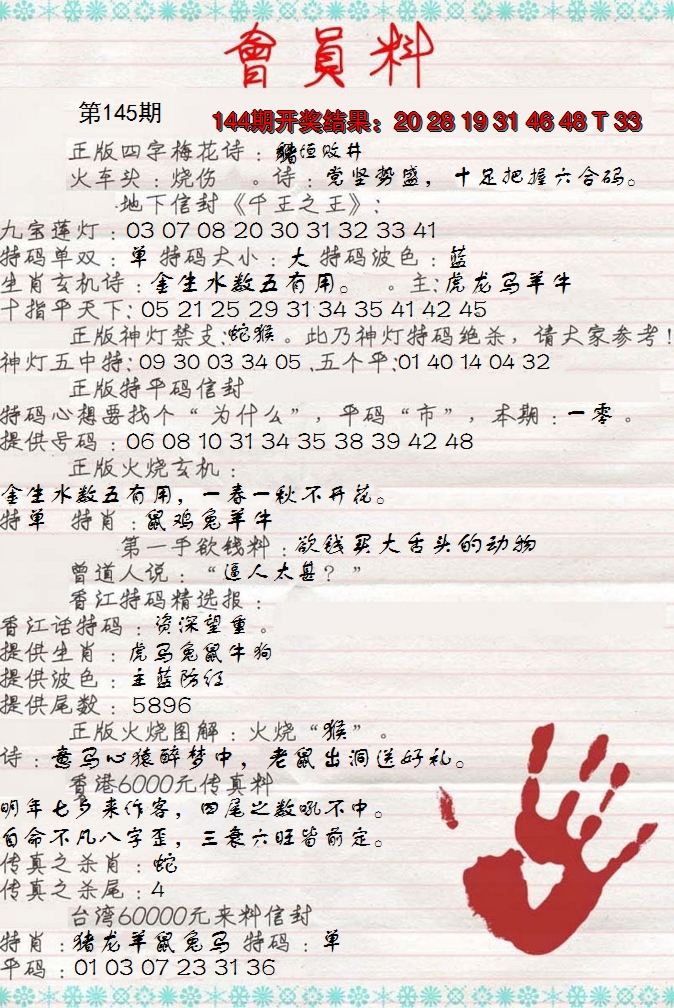 會員料
第145期
144期开奖结果：20 28 19 31 46 48 T 33
正版四字梅花诗：垣败井
火车头：烧伤 。诗：党坚势盛，十足把握六合码。
地下信封《千王之王》：
九宝莲灯：03 07 08 20 30 31 32 33 41
特码单双：单 特码大小：大 特码波色：蓝
生肖玄机诗：金生水数五有用。 。主：虎龙马羊牛
十指平天下：05 21 25 29 31 34 35 41 42 45
正版神灯禁支：蛇猴。此乃神灯特码绝杀，请大家参考！
神灯五中特：09 30 03 34 05 .五个平：01 40 14 04 32
正版特平码信封
特码心想要找个“为什么”，平码“市”，本期：一零。
提供号码：06 08 10 31 34 35 38 39 42 48
正版火烧玄机：
金生水数五有用，一春一秋不开花。
特单 特肖：鼠鸡兔羊牛
第一手欲钱料：欲钱买大舌头的动物
曾道人说：“逼人太甚？”
香江特码精选报：
香江话特码：资深望重。
提供生肖：虎马兔鼠牛狗
提供波色：主蓝防红
提供尾数：5896
正版火烧图解：火烧“猴”。
诗：意马心猿醉梦中，老鼠出洞送好礼。
香港6000元传真料
明年七夕来作客，四尾之数吼不中。
自命不凡八字歪，三衰六旺皆前定。
传真之杀肖：蛇
传真之杀尾：4
台湾60000元来料信封
特肖：猪龙羊鼠兔马 特码：单
平码：01 03 07 23 31 36